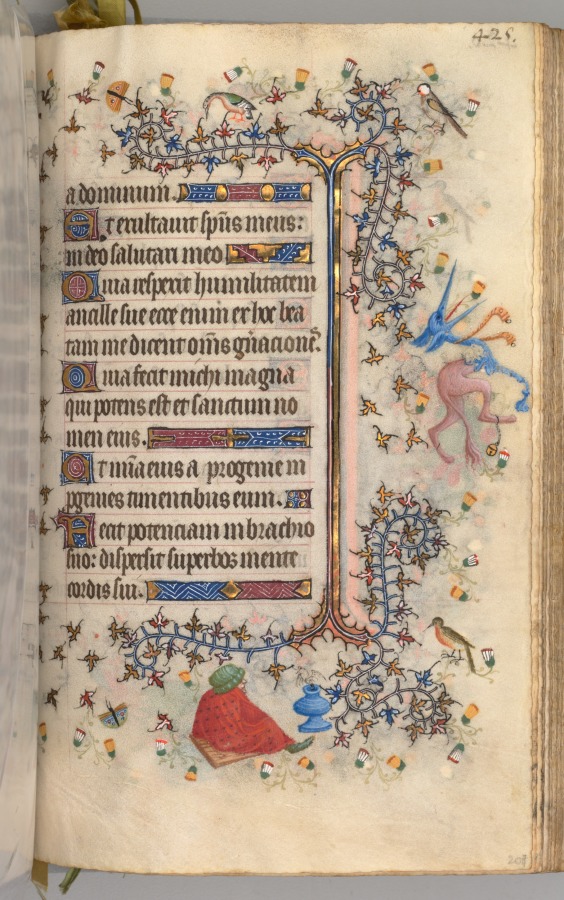 425.
a dominum.
Et exultauit sp̄us meus:
in deo salutari meo
Quia respexit humilitatem
ancille sue ecce enim ex hoc bea
tam me dicent om̄s gn̄acione᷒.
Quia fecit michi magna
qui potens est et sanctum no
men eius.
Et mīa eius a progenie in
ꝓgenies timentibus eum.
Fecit potenciam in brachio
suo: dispersit superbos mente
cordis sui.
208